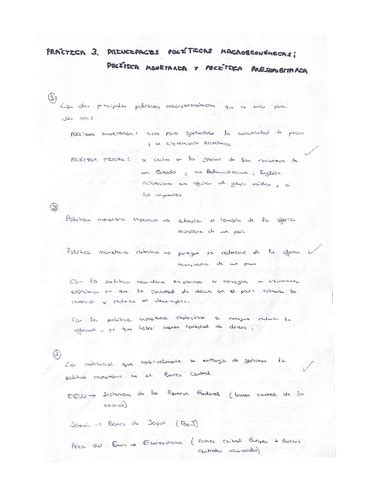 PRÁCTICA 3. PRINCIPALES POLÍTICAS MACROECONÓMICAS:
POLÍTICA MONETARIA Y POLÍTICA PRESUPUESTARIA
1)
Las dos principales políticas macroeconómicas que se usan para
son:
POLÍTICA MONETARIA: sirve para garantizar la estabilidad de precios
y el crecimiento económico
POLÍTICA FISCAL: se centra en la gestión de los recursos de
un Estado y su Administración.
de gasto público
los impuestos
2)
Política monetaria expansiva → el tamaño de la oferta
monetaria de un país
Política monetaria restrictiva → la reducción de la oferta
monetaria de un país
Con la política monetaria expansiva se consigue un crecimiento
económico ya que la cantidad de dinero en el país la
inversión y reduce el desempleo.
Con la política monetaria restrictiva se consigue reducir la
inflación, ya que habrá menos cantidad de dinero.
3)
La institución que habitualmente se encarga de gestionar la
política monetaria es el Banco Central.
EEUU → Sistema de la Reserva Federal (banco central de la
nación)
Japón → Banco de Japón (BoJ)
Área del Euro → Eurosistema (Banco Central Europeo + Bancos
centrales nacionales)